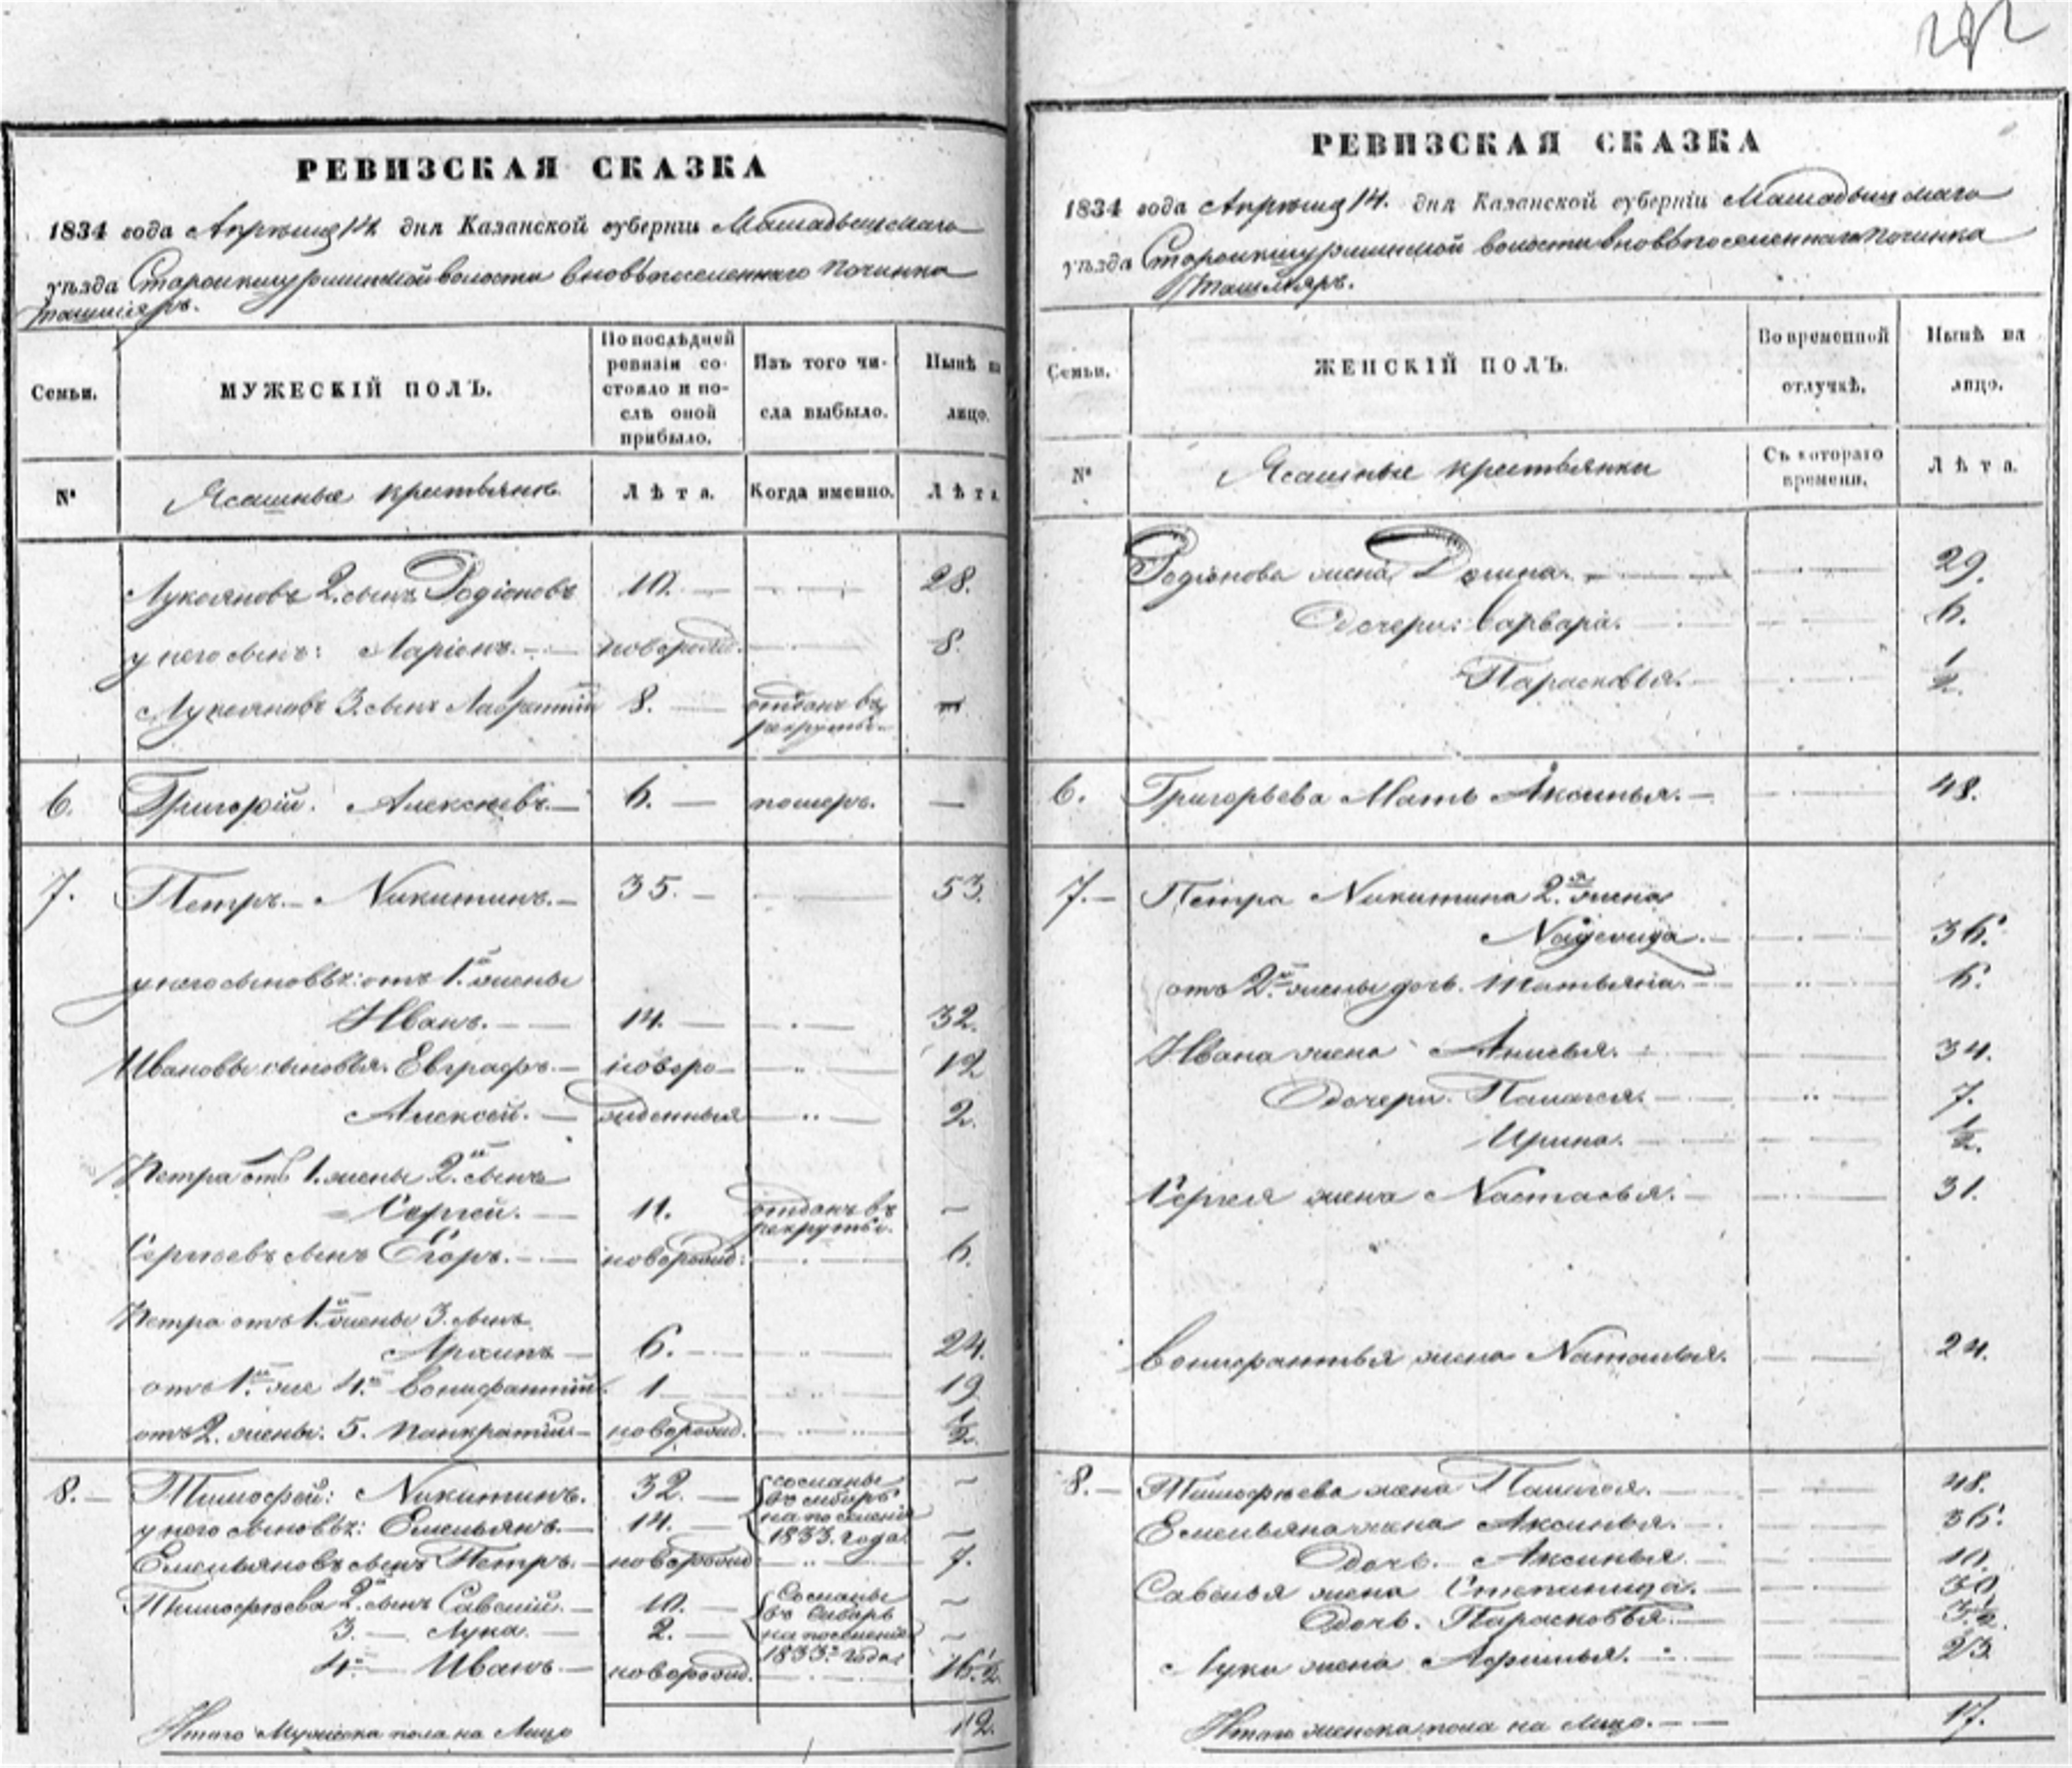 282
РЕВИЗСКАЯ СКАЗКА
1834 года Апрѣля 14 дня Казанской губерніи Мамадышскаго
уѣзда волости вновьпоселеннаго починка
Ташлияръ.
Семьи.
МУЖЕСКІЙ ПОЛЪ.
По послѣдней
ревизіи со-
стояло и по-
слѣ оной
прибыло.
Изъ того чи-
сла выбыло.
Нынѣ на
лицо.
№
Ясашные крестьяне
Лѣта.
Когда именно.
Лѣта
Лукояновъ 2. сынъ Родіоновъ 10. 28.
у него сынъ: Ларіонъ. новорожд. 8.
Лукояновъ 3. сынъ Лаврентій 8. отданъ въ
рекруты.
6. Григорій. Алексѣевъ. 6. померъ. —
7. Петръ. Никитинъ. 35. 53.
у него сыновья: отъ 1й жены
Иванъ. 14. 32.
Ивановы сыновья. Евграфъ. новоро- 12
Алексей. жденныя 2.
Петра отъ 1. жены 2й сынъ
Сергей. 11. отданъ въ
рекруты. —
Сергѣевъ сынъ Егоръ. новорожд: 6.
Петра отъ 1й жены 3. сынъ
Архипъ 6. 24.
отъ 1й же 4й Вонифантій. 1 19
отъ 2. жены: 5. Панкратій новорожд. ½
8. Тимофей: Никитинъ. 32. сосланы —
у него сыновья: Емельянъ. 14. въ сибирь
на поселеніе
1833. года. —
Емельяновъ сынъ Петръ. новорожд: 7.
Тимофѣева 2й сынъ Савелій. 10. Сосланы —
3. Лука. 2. въ Сибирь
на поселеніе —
1833го года
4й Иванъ. новорожд. 16.½
Итого Мужеска пола на Лицо 12.
РЕВИЗСКАЯ СКАЗКА
1834 года Апрѣля 14. дня Казанской губерніи Мамадышскаго
уѣзда волости вновьпоселеннаго Починка
Ташлияръ.
Семьи.
ЖЕНСКІЙ ПОЛЪ.
Во временной
отлучкѣ.
Нынѣ на
лицо.
№
Ясашные крестьянки
Съ котораго
времени.
Лѣта.
Родіонова жена Домна. 29.
дочери: Варвара. 6.
Парасковья. ½
6. Григорьева Мать Аксинья. 48.
7. Петра Никитина 2я жена
Надежда. 36.
отъ 2й жены дочь. Татьяна. 6.
Ивана жена Анисья. 34.
дочери. Палагея. 7.
Ирина. ½.
Сергея жена Настасья. 31.
Вонифантья жена Наталья. 24.
8. Тимофѣева жена Палагея. 48.
Емельяна жена Аксинья. 36.
дочь. Аксинья 10.
Савелья жена Степанида. 30.
дочь. Парасковья. 3½.
Луки жена Афимья. 23.
Итого женска пола на лицо. 17.